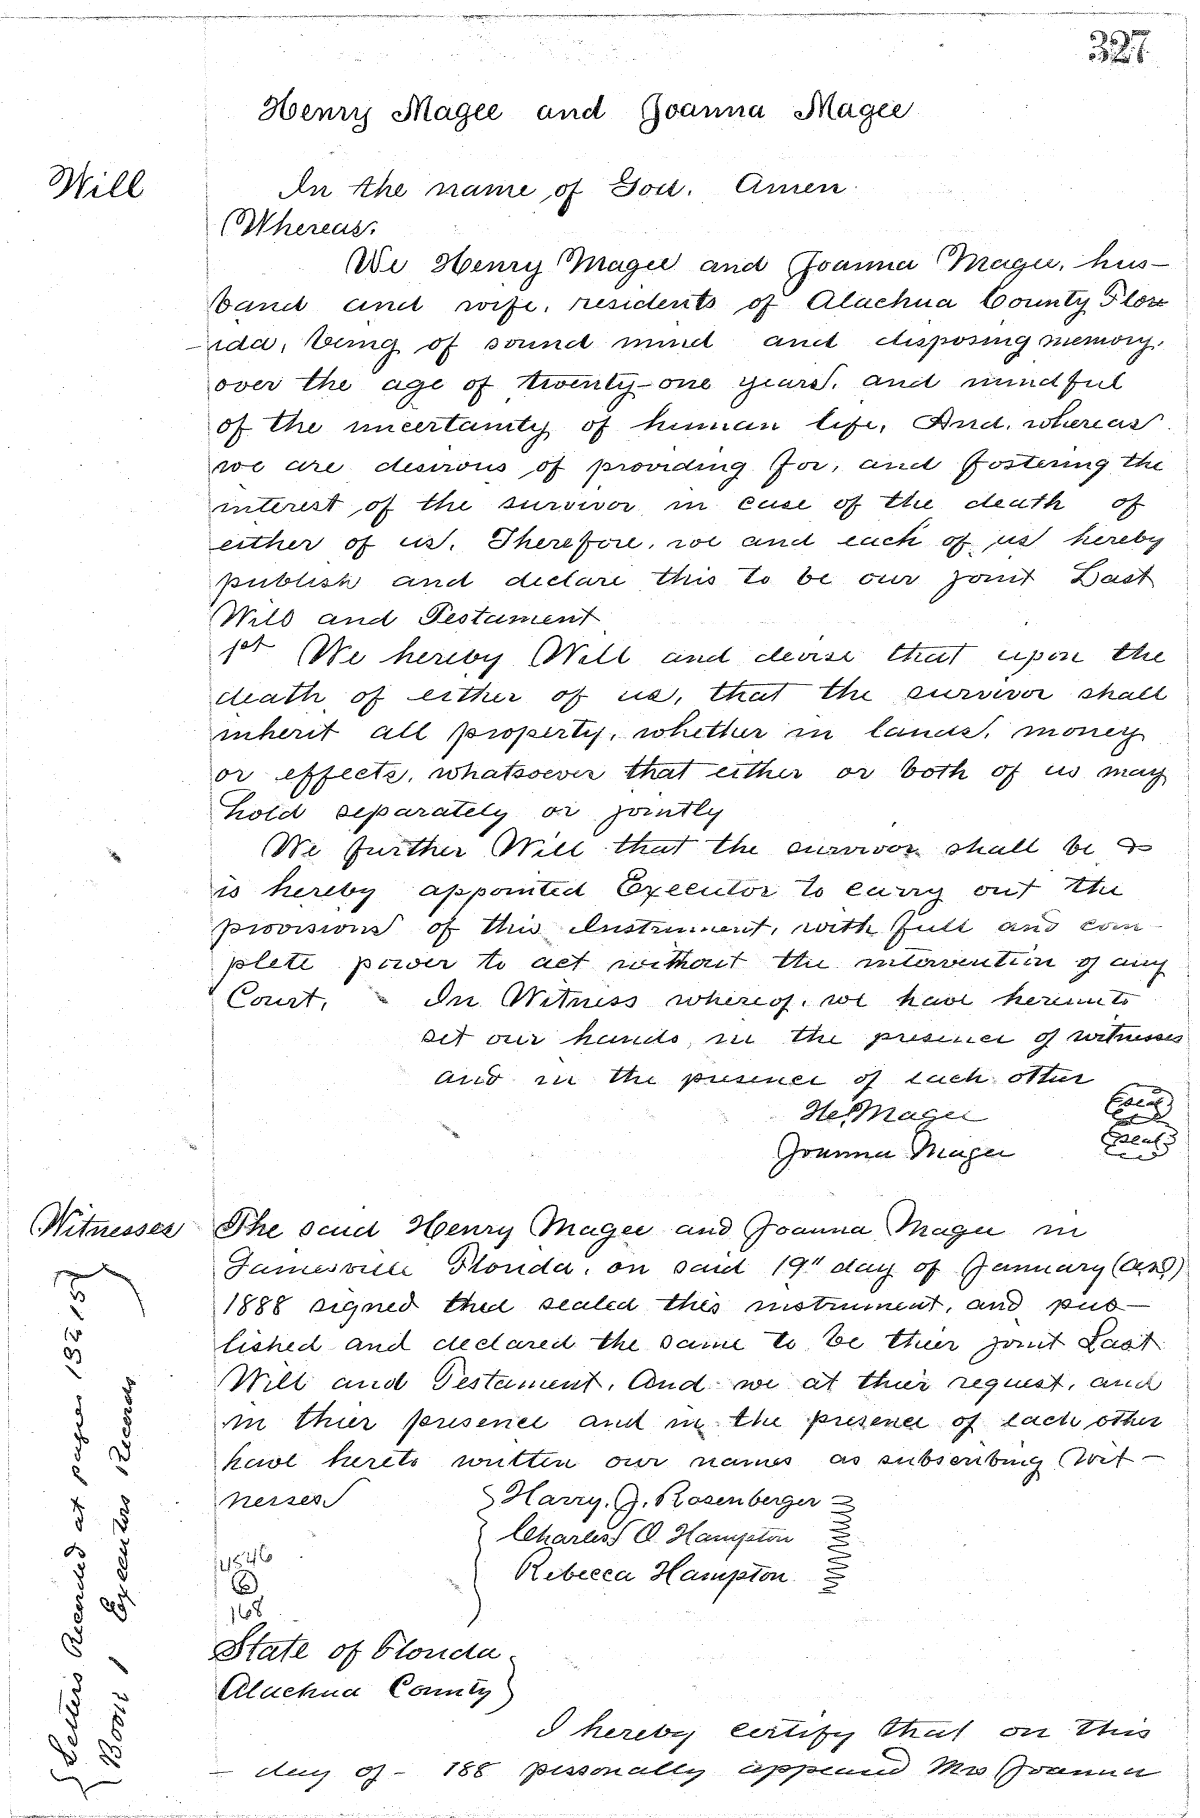 327
Henry Magee and Joanna Magee
Will
In the name of God. Amen.
Whereas.
We Henry Magee and Joanna Magee, hus-
band and wife, residents of Alachua County Flor
-ida, being of sound mind and disposing memory,
over the age of twenty-one years, and mindful
of the uncertainty of human life, And, whereas
we are desirous of providing for, and fostering the
interest of the survivor in case of the death of
either of us. Therefore, we and each of us hereby
publish and declare this to be our joint Last
Will and Testament
1st We hereby Will and devise that upon the
death of either of us, that the survivor shall
inherit all property, whether in lands, money
or effects, whatsoever that either or both of us may
hold separately or jointly
We further Will that the survivor shall be &
is hereby appointed Executor to carry out the
provisions of this Instrument, with full and com-
plete power to act without the intervention of any
Court. In Witness whereof, we have hereunto
set our hands in the presence of witnesses
and in the presence of each other
He. Magee (seal)
Joanna Magee (seal)
Witnesses
The said Henry Magee and Joanna Magee in
Gainesville Florida, on said 19" day of January (A.D.)
1888 signed and sealed this instrument, and pub-
lished and declared the same to be thier joint Last
Will and Testament. And we at thier request, and
in thier presence and in the presence of each other
have hereto written our names as subscribing Wit-
nesses
Harry. J. Rosenberger
Charles O. Hampton
Rebecca Hampton
4546
168
State of Florida
Alachua County
I hereby certify that on this
- day of - 188 personally appeared Mrs Joanna
Letters Recorded at pages 13 & 15
Book 1 Executors Records